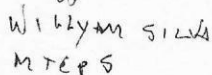 WILLYAM SILVA
MTEPS